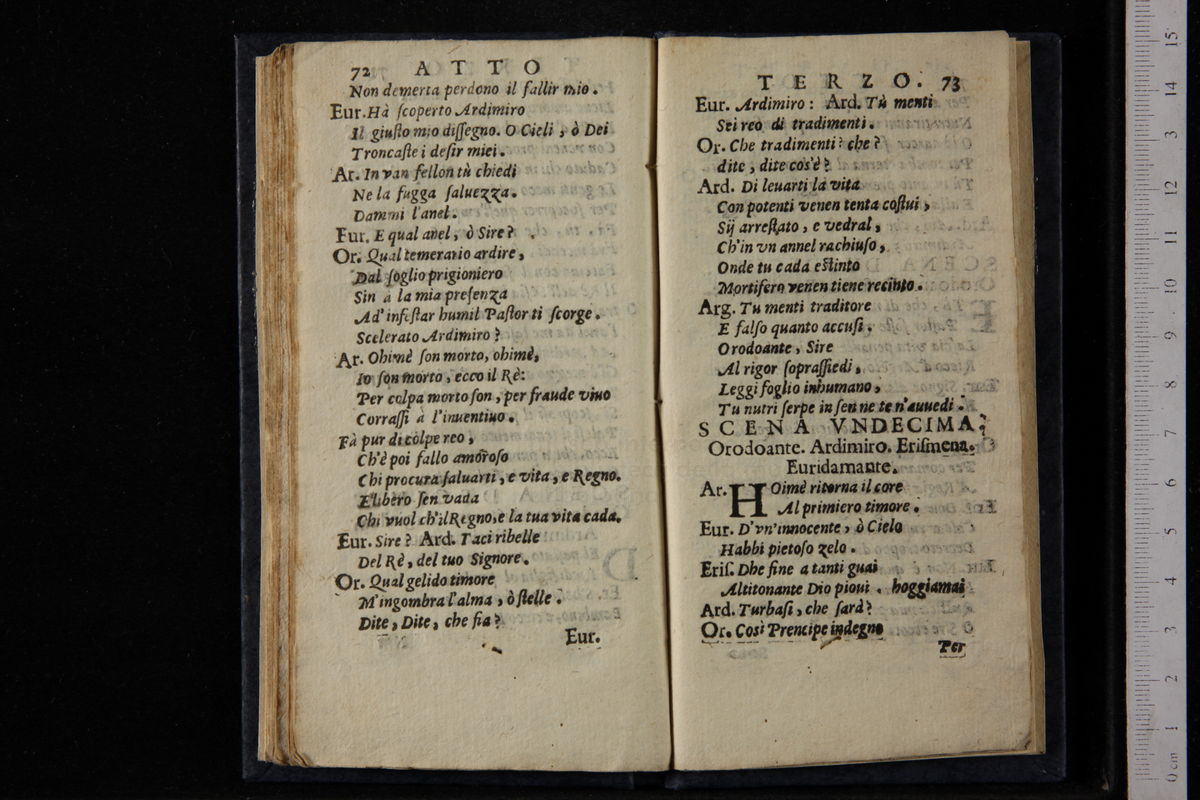 72 ATTO
Non demerta perdono il fallir mio.
Eur. Hà ſcoperto Ardimiro
Il giuſto mio diſſegno. O Cieli, ò Dei
Troncaſte i deſir miei.
Ar. In van fellon tù chiedi
Ne la fugga ſaluezza.
Dammi l'anel.
Eur. E qual anel, ò Sire?
Or. Qual temerario ardire,
Dal ſoglio prigioniero
Sin a la mia preſenza
Ad' infeſtar humil Paſtor ti ſcorge.
Scelerato Ardimiro?
Ar. Ohimè ſon morto, ohimè,
Io ſon morto, ecco il Rè:
Per colpa morto ſon, per fraude viuo
Corraſſi à l'inuentiuo.
Fà pur di colpe reo,
Ch'è poi fallo amoroſo
Chi procura ſaluarti, e vita, e Regno.
E libero ſen vada
Chi vuol ch'il Regno, e la tua vita cada.
Eur. Sire? Ard. Taci ribelle
Del Rè, del tuo Signore.
Or. Qual gelido timore
M'ingombra l'alma, ò ſtelle.
Dite, Dite, che fia?
Eur.
TERZO. 73
Eur. Ardimiro: Ard. Tù menti
Sei reo di tradimenti.
Or. Che tradimenti? che?
dite, dite cos'è?
Ard. Di leuarti la vita
Con potenti venen tenta coſtui,
Sij arreſtato, e vedral,
Ch'in vn annel rachiuſo,
Onde tu cada eſtinto
Mortifero venen tiene recinto.
Arg. Tu menti traditore
E falſo quanto accuſi.
Orodoante, Sire
Al rigor ſopraſſiedi,
Leggi foglio inhumano,
Tu nutri ſerpe in ſen ne te n'auuedi.
SCENA VNDECIMA.
Orodoante. Ardimiro. Eriſmena.
Euridamante.
Ar. HOimè ritorna il core
Al primiero timore.
Eur. D'vn'innocente, ò Cielo
Habbi pietoſo zelo.
Eriſ. Dhe fine a tanti guai
Altitonante Dio pioui. hoggiamai
Ard. Turbaſi, che ſarà?
Or. Così Prencipe indegno
Per